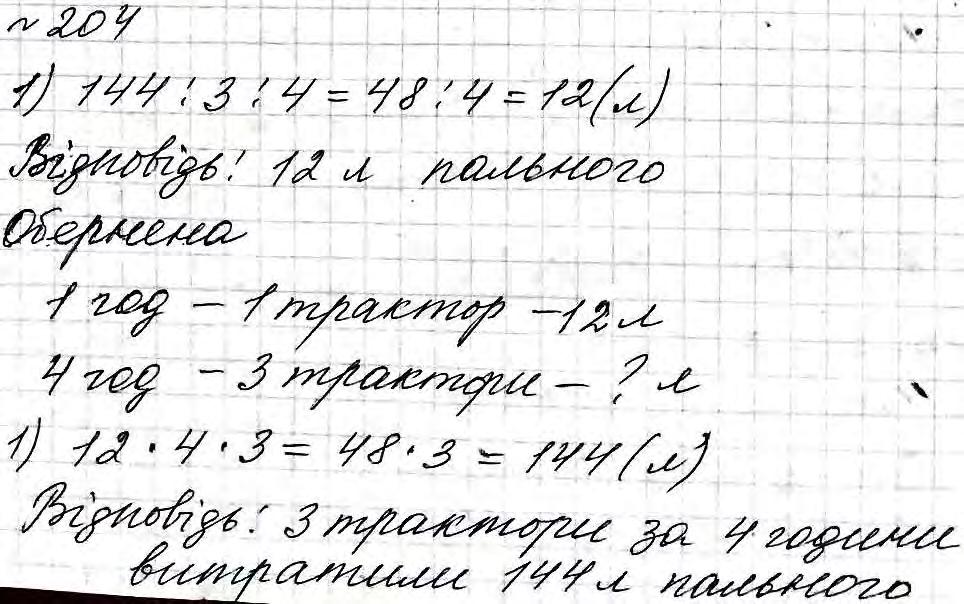 №204
1) 144 : 3 : 4 = 48 : 4 = 12 (л)
Відповідь: 12 л пального
Обернена
1 год – 1 трактор – 12 л
4 год – 3 трактори – ? л
1) 12 · 4 · 3 = 48 · 3 = 144 (л)
Відповідь: 3 трактори за 4 години
витратили 144 л пального